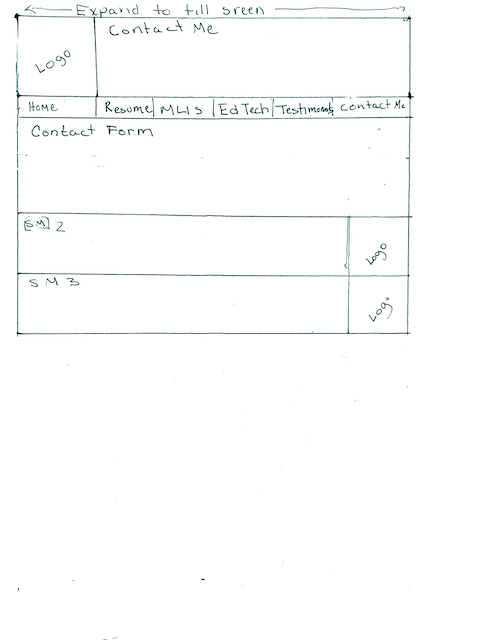 Expand to fill sreen
Contact Me
Logo
Home Resume MLIS EdTech Testimonials Contact Me
Contact Form
SM 2
Logo
SM 3
Logo